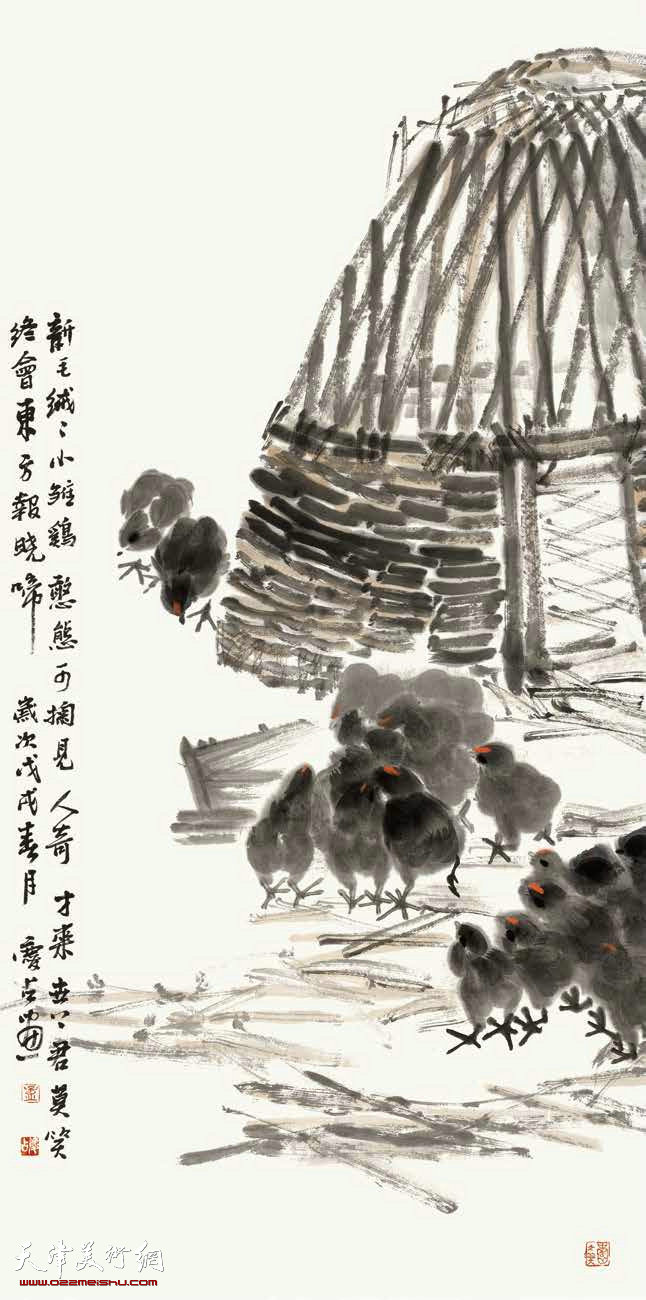 新毛絨〻小雛鷄憨態可掬見人奇才来世上君莫笑
終會東方報晓啼 歲次戊戌春月 慶占画
天津美術網
www.022meishu.com